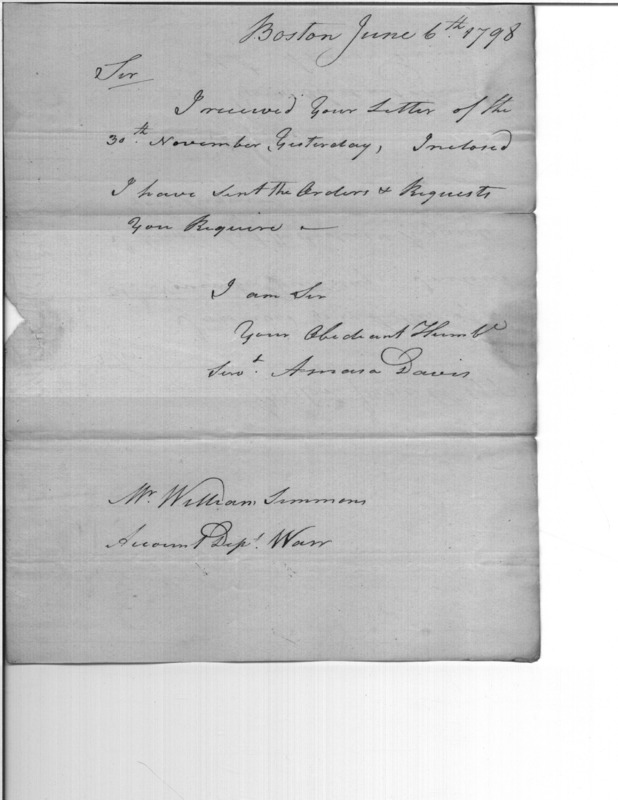 Boston June 6th. 1798
Sir
I received Your Letter of the
30th November, Yesterday, Inclosed
I have Sent the Orders & Requests
You Require –
I am Sir
Your Obediant Humbl
Servt. Amasa Davis
Mr. William Simmons
Account Dept. Warr